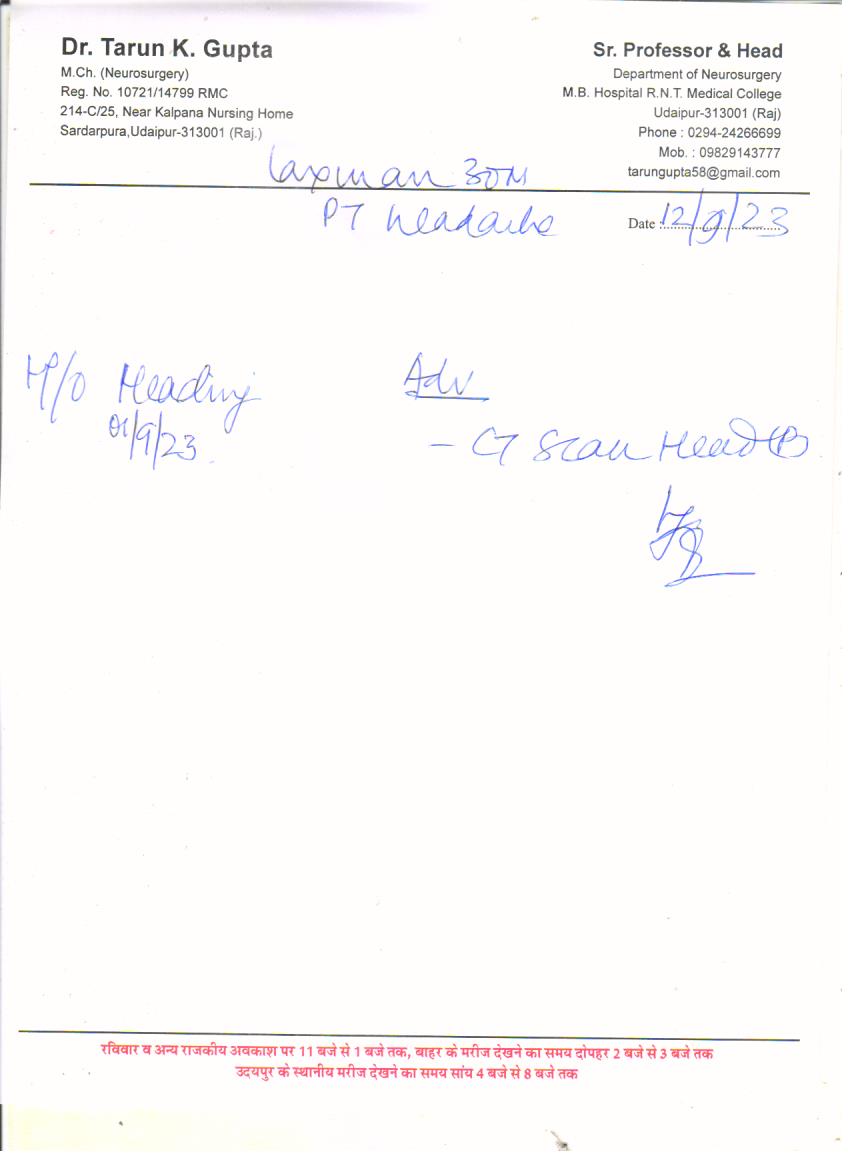 Dr. Tarun K. Gupta
M.Ch. (Neurosurgery)
Reg. No. 10721/14799 RMC
214-C/25, Near Kalpana Nursing Home
Sardarpura,Udaipur-313001 (Raj.)
Sr. Professor & Head
Department of Neurosurgery
M.B. Hospital R.N.T. Medical College
Udaipur-313001 (Raj)
Phone : 0294-24266699
Mob. : 09829143777
tarungupta58@gmail.com
Laxman 30M
PT headache
Date : 12/9/23
H/O
01/9/23
Adv
- CT Scan Head
रविवार व अन्य राजकीय अवकाश पर 11 बजे से 1 बजे तक, बाहर के मरीज देखने का समय दोपहर 2 बजे से 3 बजे तक
उदयपुर के स्थानीय मरीज देखने का समय सांय 4 बजे से 8 बजे तक